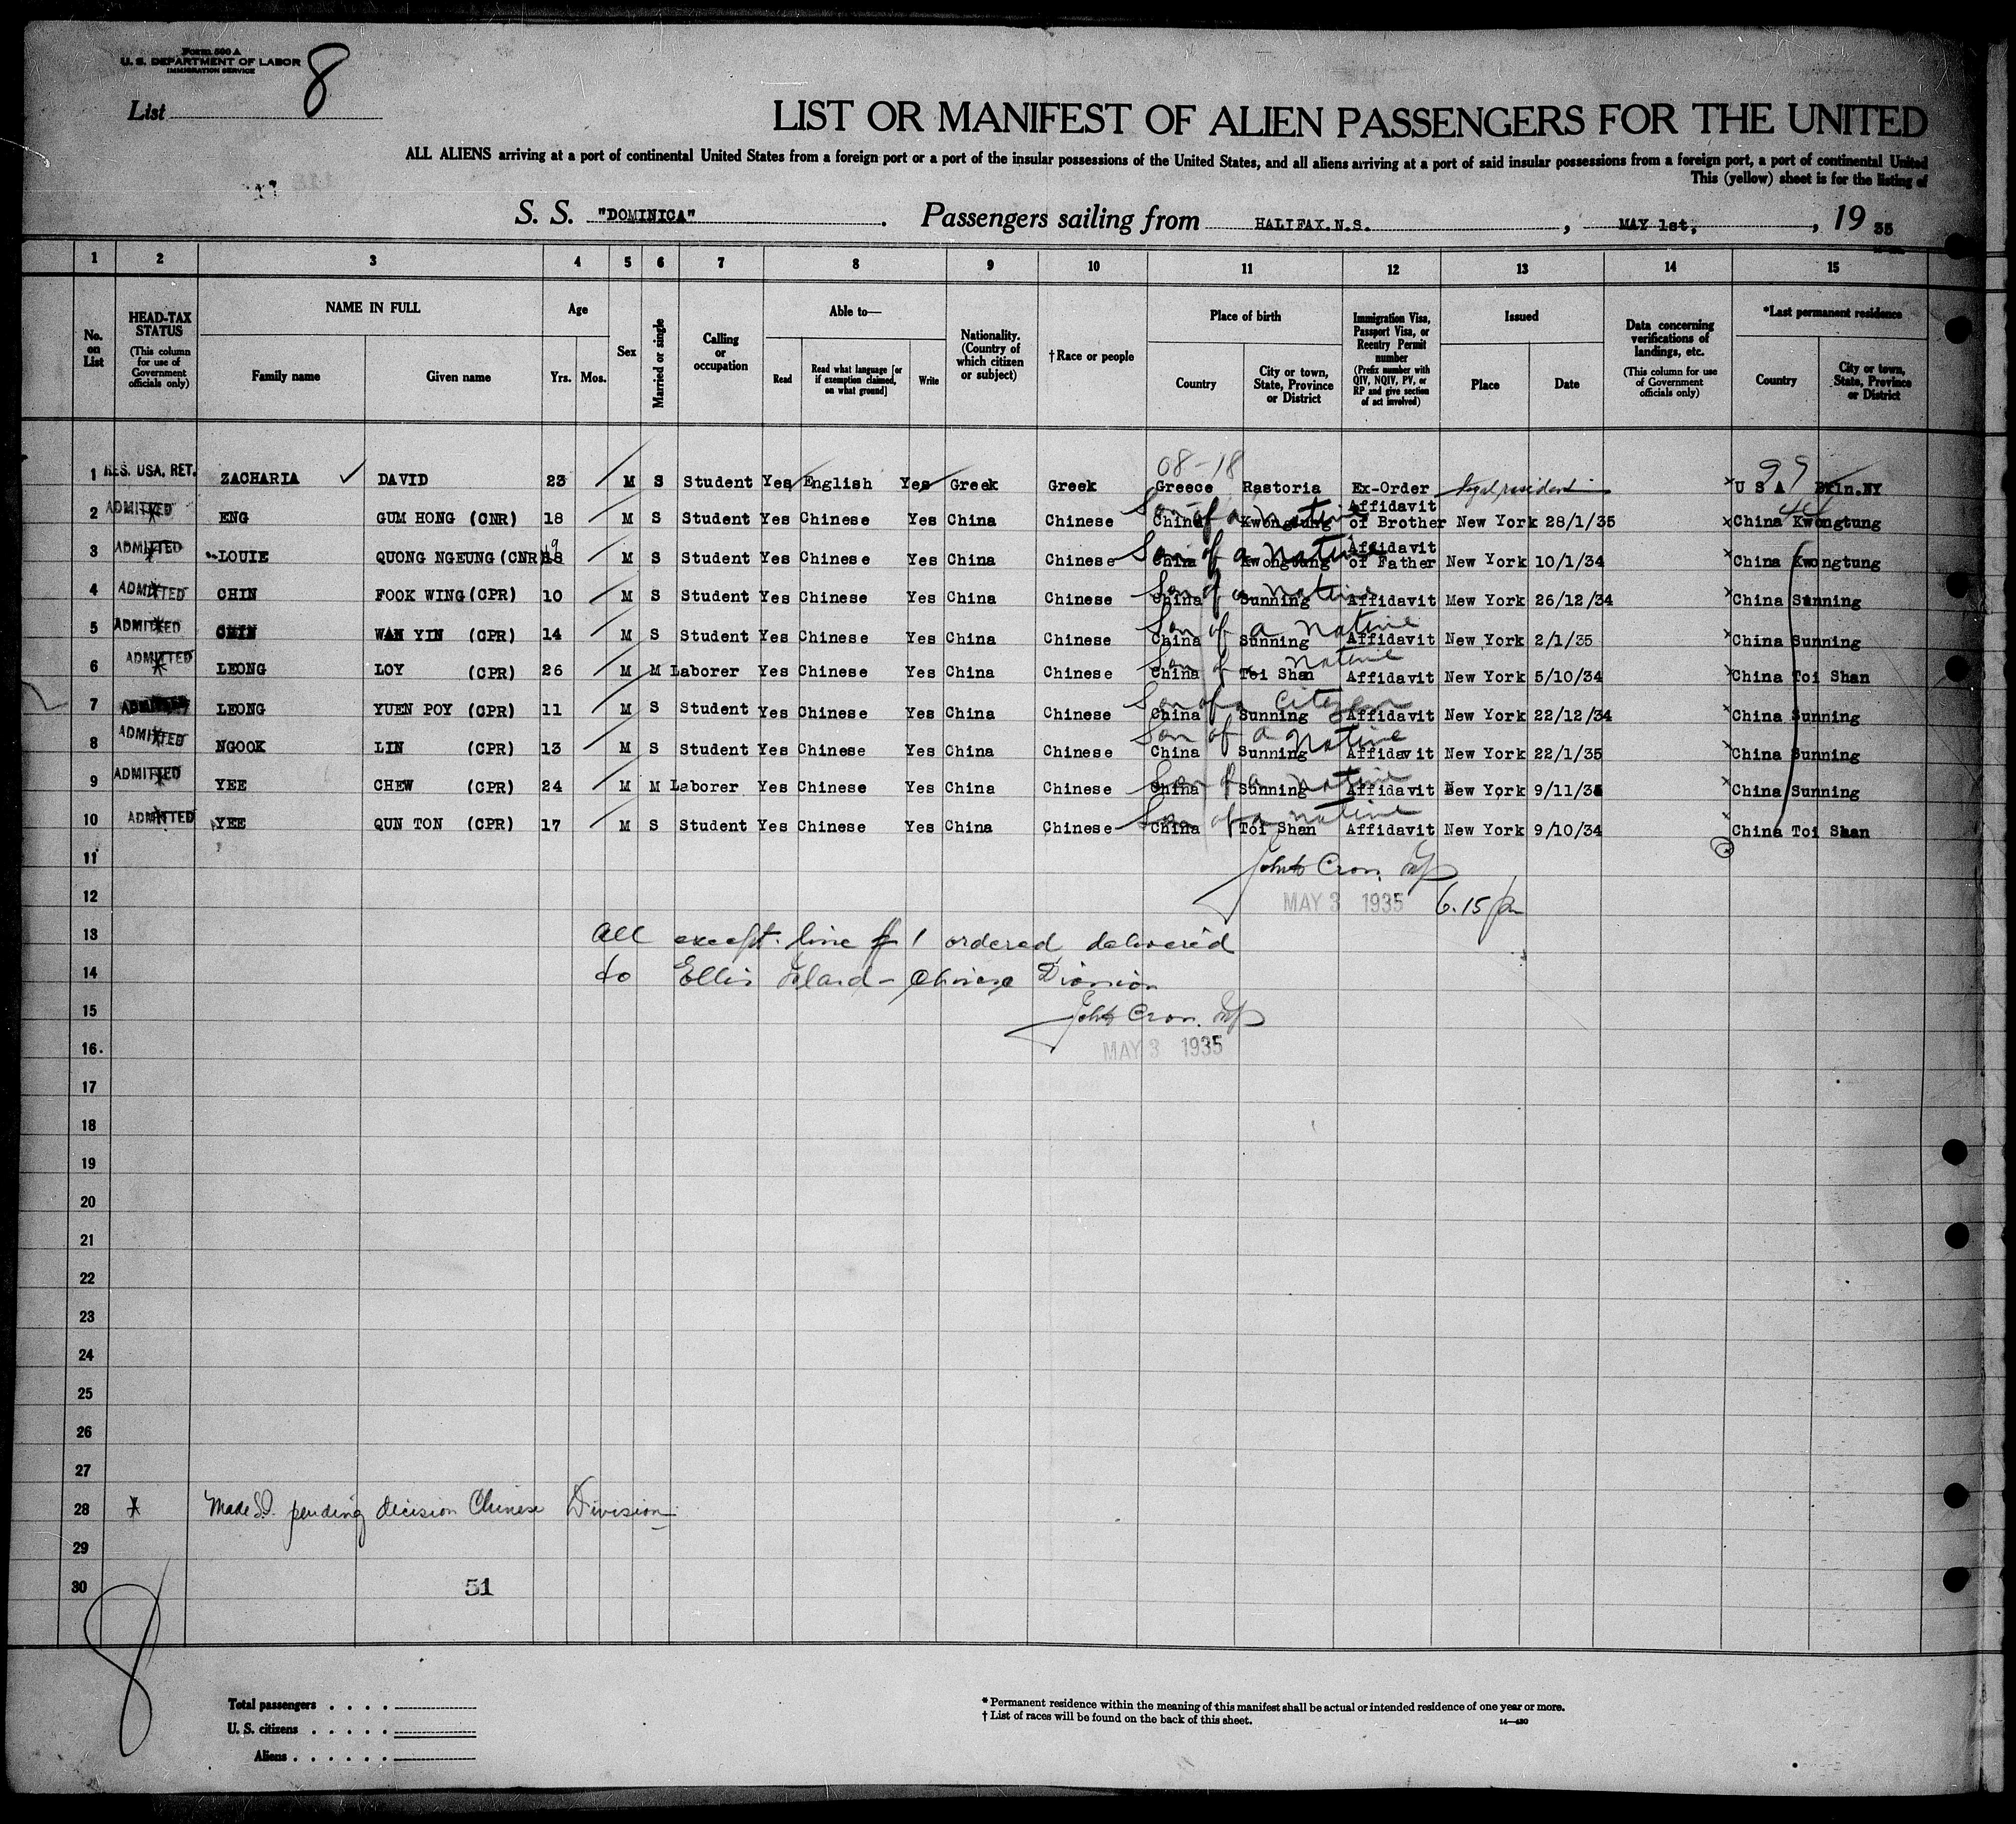 Form 500 A
U. S. DEPARTMENT OF LABOR
IMMIGRATION SERVICE
List 8
LIST OR MANIFEST OF ALIEN PASSENGERS FOR THE UNITED
ALL ALIENS arriving at a port of continental United States from a foreign port or a port of the insular possessions of the United States, and all aliens arriving at a port of said insular possessions from a foreign port, a port of continental United
This (yellow) sheet is for the listing of
S. S. "DOMINICA" . Passengers sailing from HALIFAX.N.S. , MAY 1st, , 19 35
1 2 3 4 5 6 7 8 9 10 11 12 13 14 15
No. on List
HEAD-TAX STATUS (This column for use of Government officials only)
NAME IN FULL
Family name
Given name
Age
Yrs. Mos.
Sex
Married or single
Calling or occupation
Able to—
Read
Read what language [or if exemption claimed, on what ground]
Write
Nationality. (Country of which citizen or subject)
†Race or people
Place of birth
Country
City or town, State, Province or District
Immigration Visa, Passport Visa, or Reentry Permit number (Prefix number with QIV, NQIV, PV, or RP and give section of act involved)
Issued
Place
Date
Data concerning verifications of landings, etc. (This column for use of Government officials only)
*Last permanent residence
Country
City or town, State, Province or District
08-18 99
1 RES. USA, RET. ZACHARIA ✓ DAVID 23 M S Student Yes English Yes Greek Greek Greece Rastoria Ex-Order legal resident x U S A Bkln.NY
2 ADMITTED ENG GUM HONG (CNR) 18 M S Student Yes Chinese Yes China Chinese China Kwongtung Son of a native Affidavit of Brother New York 28/1/35 x China Kwongtung
3 ADMITTED LOUIE QUONG NGEUNG (CNR) 19 M S Student Yes Chinese Yes China Chinese China Kwongtung Son of a native Affidavit of Father New York 10/1/34 x China Kwongtung
4 ADMITTED CHIN FOOK WING (CPR) 10 M S Student Yes Chinese Yes China Chinese China Sunning Son of a native Affidavit Mew York 26/12/34 x China Sunning
5 ADMITTED CHIN WAN YIN (CPR) 14 M S Student Yes Chinese Yes China Chinese China Sunning Son of a native Affidavit New York 2/1/35 x China Sunning
6 ADMITTED LEONG LOY (CPR) 26 M M Laborer Yes Chinese Yes China Chinese China Toi Shan Son of a native Affidavit New York 5/10/34 x China Toi Shan
7 ADMITTED LEONG YUEN POY (CPR) 11 M S Student Yes Chinese Yes China Chinese China Sunning Son of a Citizen Affidavit New York 22/12/34 x China Sunning
8 ADMITTED NGOOK LIN (CPR) 13 M S Student Yes Chinese Yes China Chinese China Sunning Son of a native Affidavit New York 22/1/35 x China Sunning
9 ADMITTED YEE CHEW (CPR) 24 M M Laborer Yes Chinese Yes China Chinese China Sunning Son of a native Affidavit New York 9/11/34 x China Sunning
10 ADMITTED YEE QUN TON (CPR) 17 M S Student Yes Chinese Yes China Chinese China Toi Shan Son of a native Affidavit New York 9/10/34 x China Toi Shan
11 John Cron. Insp
12 MAY 3 1935 6.15 pm
13 All except line # 1 ordered delivered
14 to Ellis Island - Chinese Division
15 John Cron. Insp
16. MAY 3 1935
17
18
19
20
21
22
23
24
25
26
27
28 * Made S.I. pending decision Chinese Division
29
30 51
8
Total passengers . . . .
U. S. citizens . . . . .
Aliens . . . . . .
* Permanent residence within the meaning of this manifest shall be actual or intended residence of one year or more.
† List of races will be found on the back of this sheet.
14—430